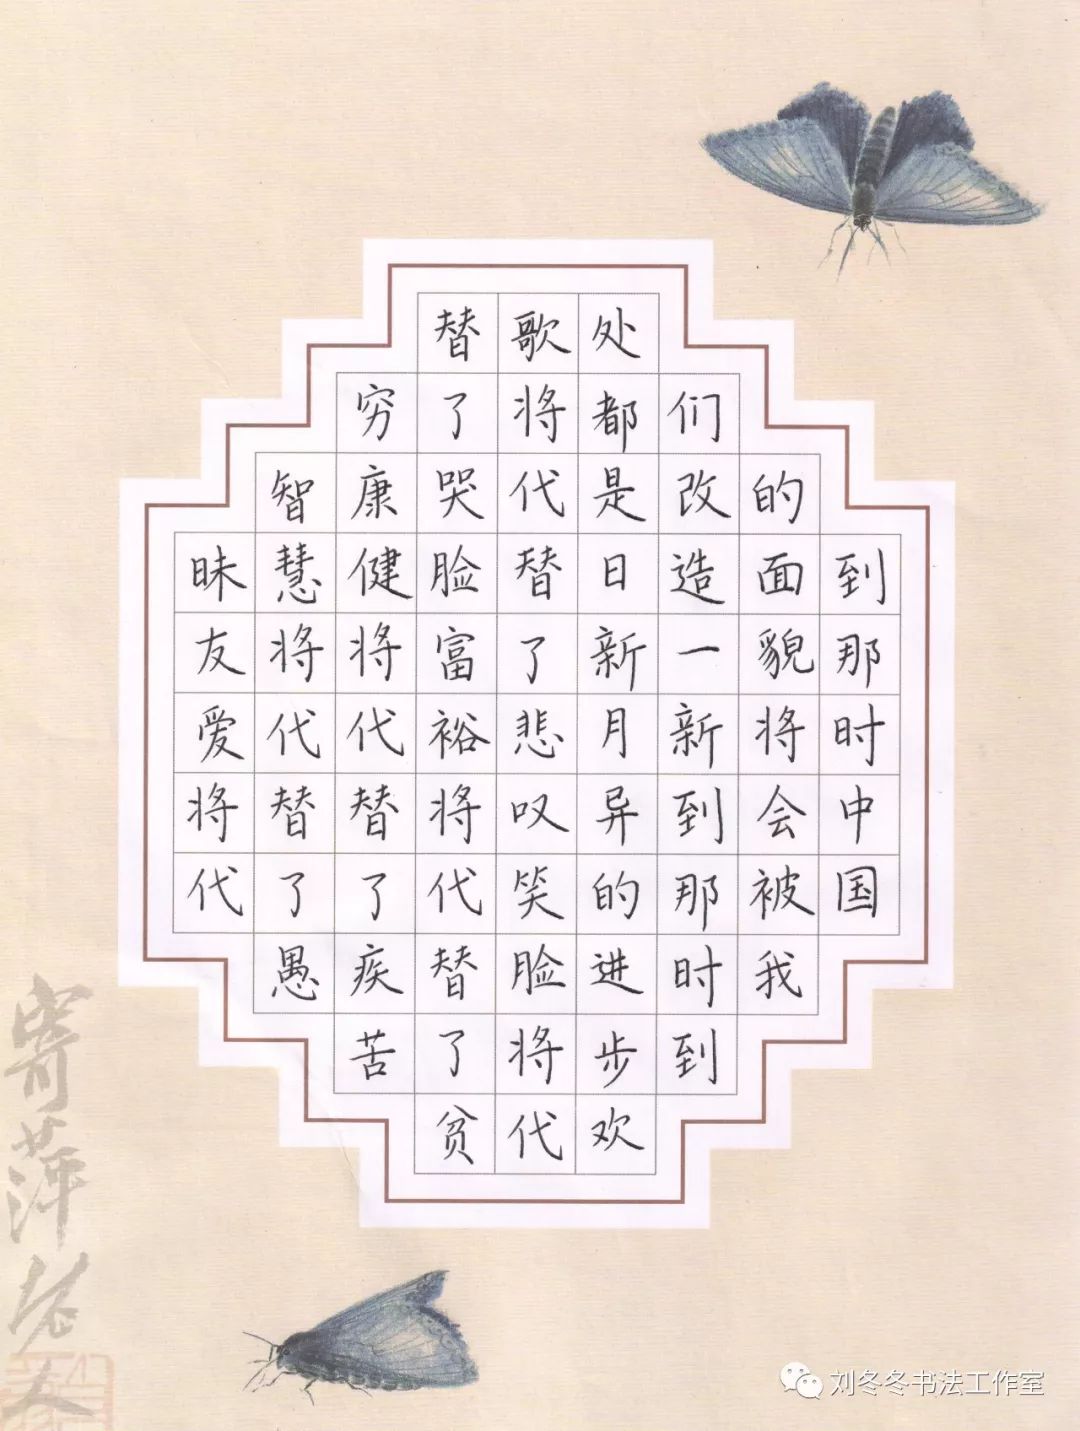 到那时中国
的面貌将会被我
们改造一新到那时到
处都是日新月异的进步欢
歌将代替了悲叹笑脸将代
替了哭脸富裕将代替了贫
穷康健将代替了疾苦
智慧将代替了愚
昧友爱将代
寄萍老人
刘冬冬书法工作室